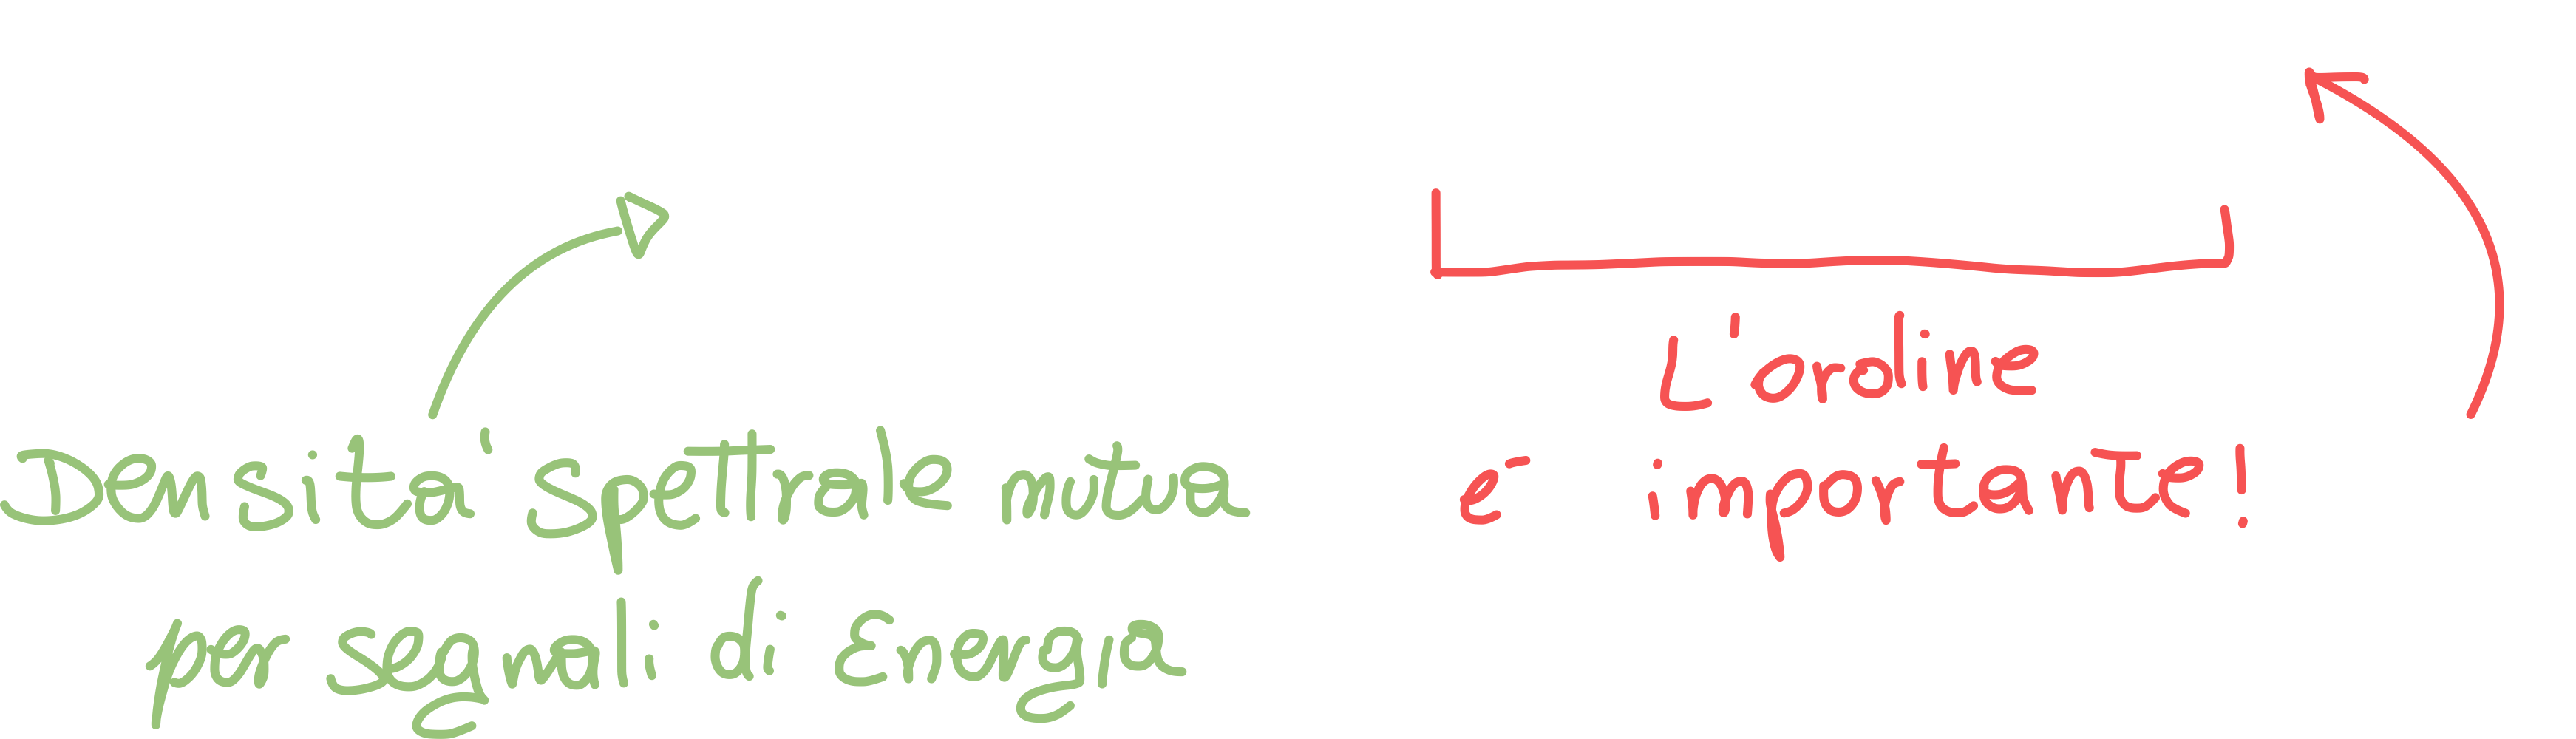 Densita' spettrale mutua
per segnali di Energia
L'ordine
e' importante!